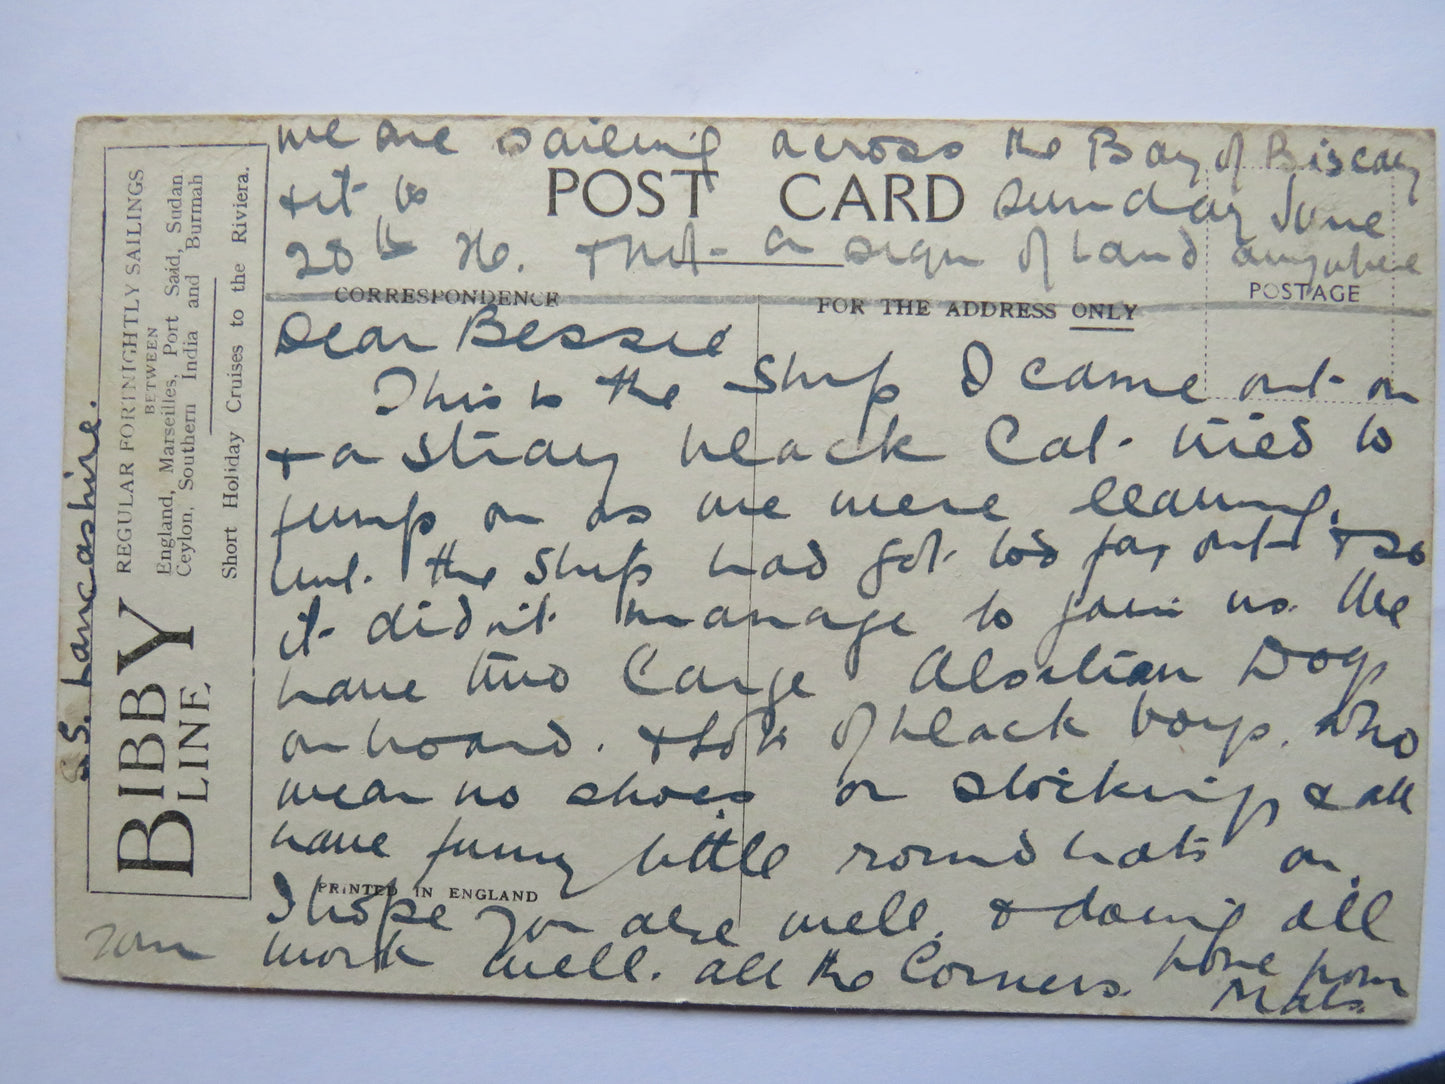 we are sailing across the Bay of Biscay
& it is
POST CARD
Sunday June
28th & not a sign of land anywhere
CORRESPONDENCE
FOR THE ADDRESS ONLY
POSTAGE
Dear Bessie
This is the Ship I came out on
& a stray black Cat tried to
jump on as we were leaving,
but the Ship had got too far out & so
it didn't manage to join us. We
have two Large Alsatian Dogs
on board. & lots of black boys. who
wear no shoes or stockings, & all
have funny little round hats on.
PRINTED IN ENGLAND
I hope you are well, & doing all
work well. all the Corners.
S.S. Lancashire.
BIBBY
LINE
REGULAR FORTNIGHTLY SAILINGS
BETWEEN
England, Marseilles, Port Said, Sudan
Ceylon, Southern India and Burmah
Short Holiday Cruises to the Riviera.